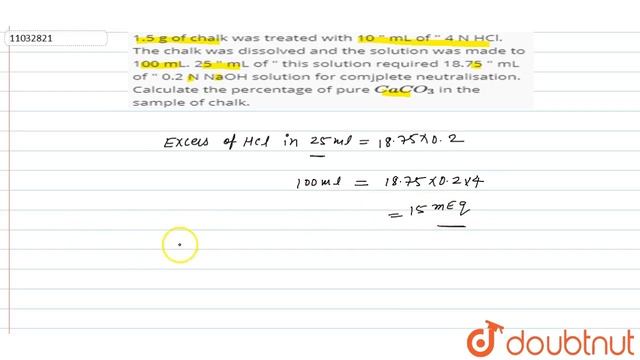 11032821
1.5 g of chalk was treated with 10 " mL of " 4 N HCl.
The chalk was dissolved and the solution was made to
100 mL. 25 " mL of " this solution required 18.75 " mL
of " 0.2 N NaOH solution for comjplete neutralisation.
Calculate the percentage of pure CaCO₃ in the
sample of chalk.
Excess of HCl in 25 ml = 18.75 × 0.2
100 ml = 18.75 × 0.2 × 4
= 15 mEq
doubtnut